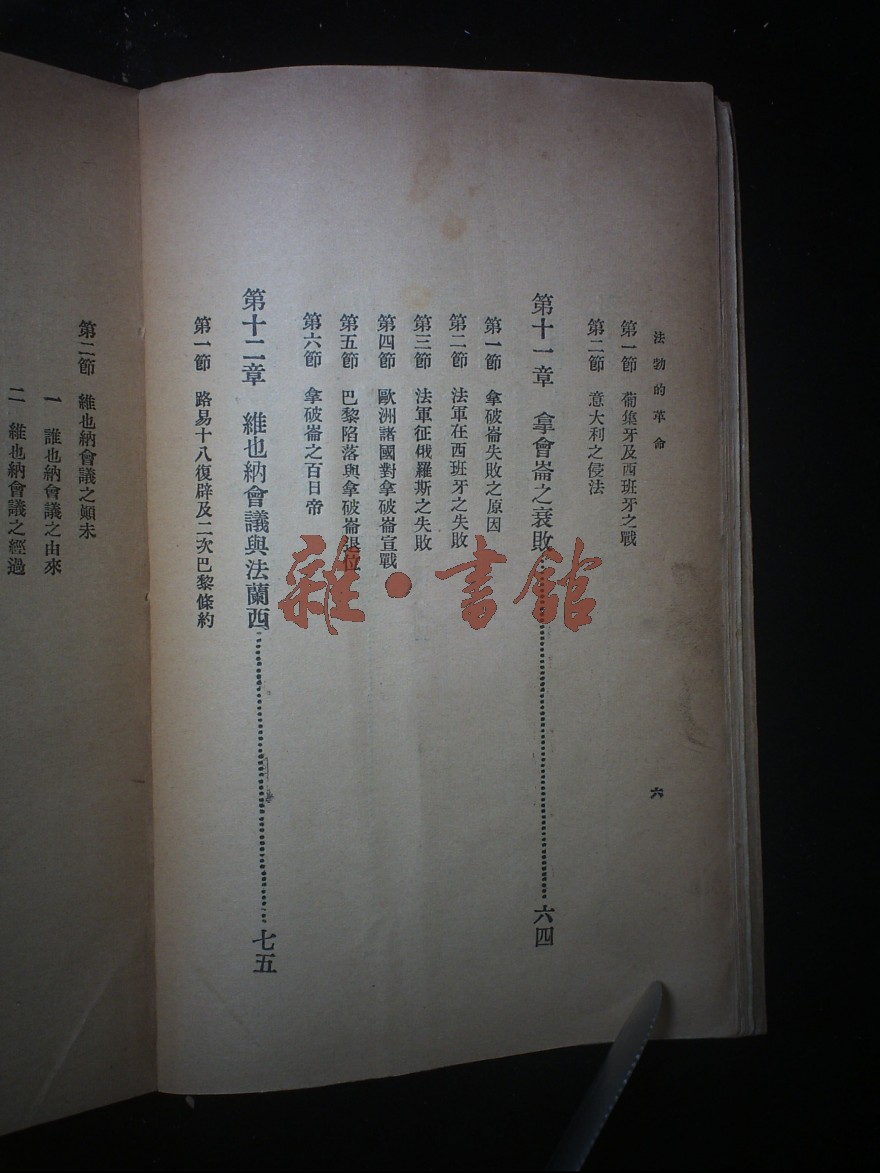 法勃的革命
第一節　葡萄牙及西班牙之戰
第二節　意大利之侵法
第十一章　拿會崙之衰敗……六四
第一節　拿破崙失敗之原因
第二節　法軍在西班牙之失敗
第三節　法軍征俄羅斯之失敗
第四節　歐洲諸國對拿破崙宣戰
第五節　巴黎陷落與拿破崙退位
第六節　拿破崙之百日帝
第十二章　維也納會議與法蘭西……七五
第一節　路易十八復辟及二次巴黎條約
六
第二節　維也納會議之顛末
一　維也納會議之由來
二　維也納會議之經過
雜·書館